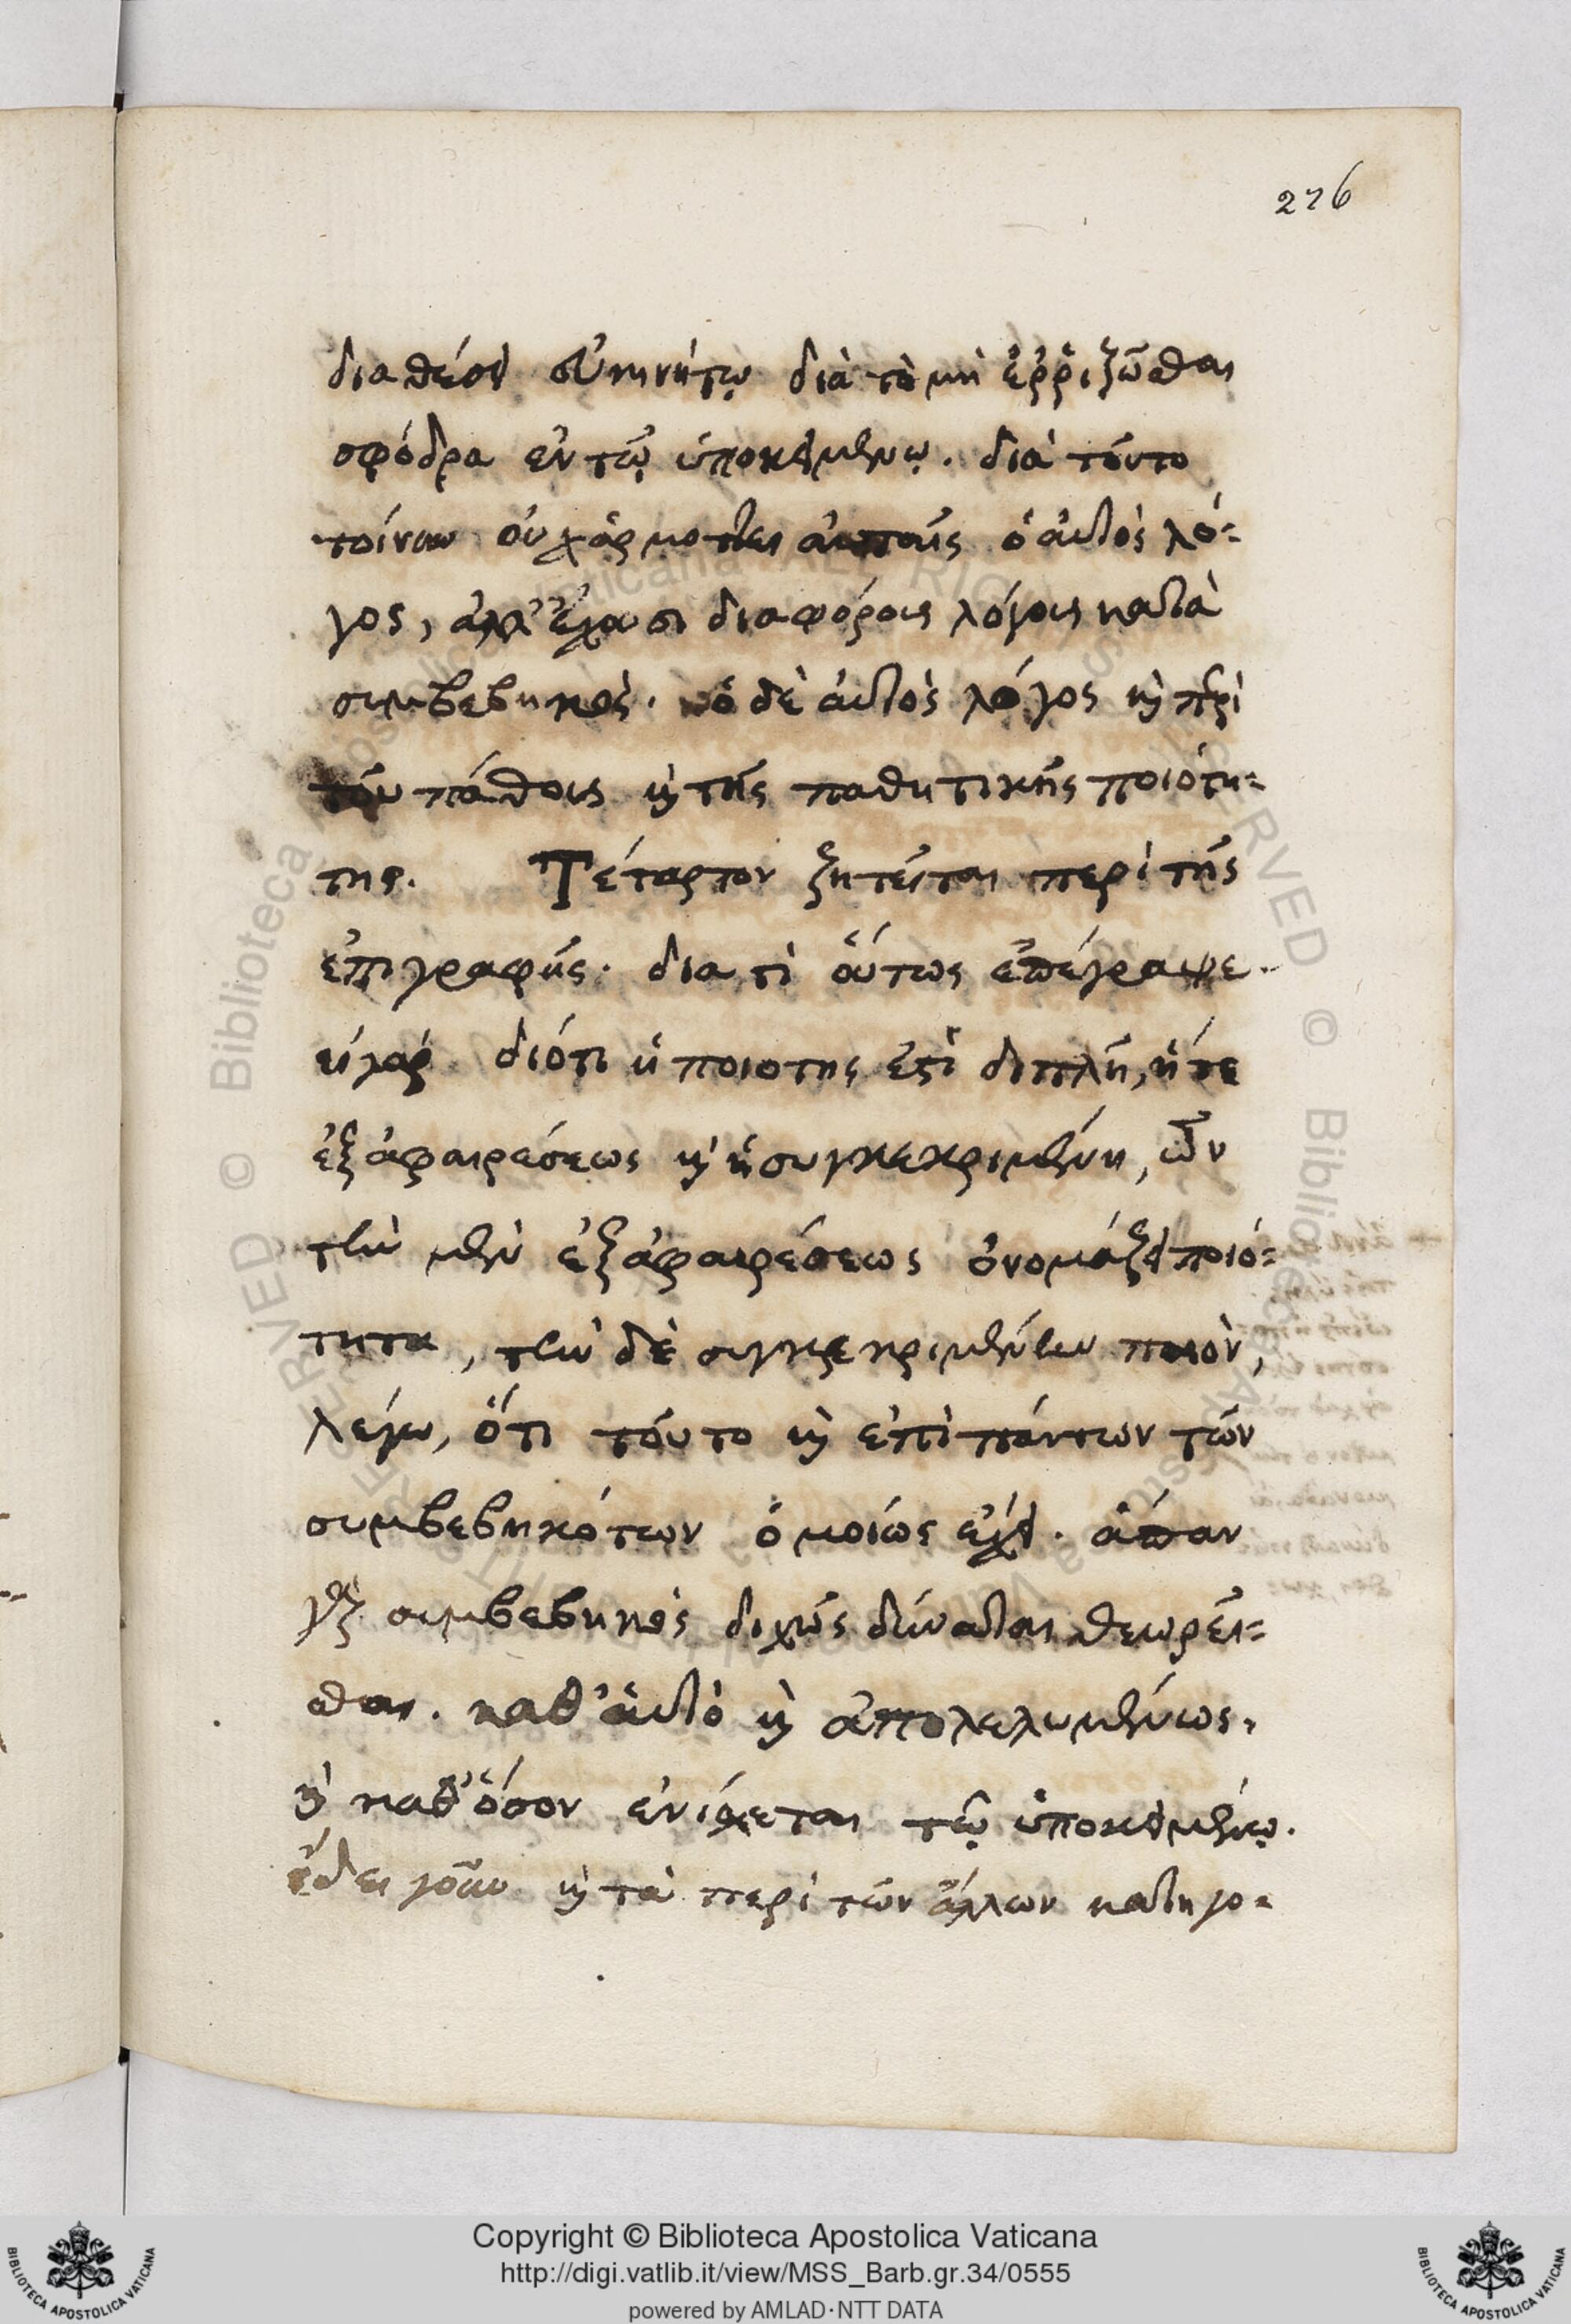 276
διαθέσει εὐκινήτῳ διὰ τὸ μὴ ἐῤῥιζῶσθαι
σφόδρα ἐν τῷ ὑποκειμένῳ. διὰ τοῦτο
τοίνυν οὐχ ἁρμόττει αὐταῖς ὁ αὐτὸς λό=
γος, ἀλλ' ἔχουσι διαφόρους λόγους κατὰ
συμβεβηκός. ὁ δὲ αὐτὸς λόγος καὶ περὶ
τοῦ πάθους καὶ τῆς παθητικῆς ποιότη=
τος. Τέταρτον ζητεῖται περὶ τῆς
ἐπιγραφῆς. διατὶ οὕτως ἐπέγραψε.
διότι ἡ ποιοτης ἐστὶ διπλῆ, ἥ τε
ἐξ ἀφαιρέσεως καὶ ἡ συγκεκριμένη, ὧν
τὴν μὲν ἐξ ἀφαιρέσεως ὀνομάζει ποιό=
τητα, τὴν δὲ συγκεκριμένην ποιὸν,
λέγω, ὅτι τοῦτο καὶ ἐπὶ πάντων τῶν
συμβεβηκότων ὁμοίως ἔχει. ἅπαν
γὰρ συμβεβηκὸς διχῶς δύναται θεωρεῖ=
σθαι. καθ' αὑτὸ καὶ ἀπολελυμένως.
καὶ καθ' ὅσον ἐνίσχεται τῷ ὑποκειμένῳ.
ἔδει γοῦν καὶ τὰ περὶ τῶν ἄλλων κατηγο=
Copyright © Biblioteca Apostolica Vaticana
http://digi.vatlib.it/view/MSS_Barb.gr.34/0555
powered by AMLAD·NTT DATA